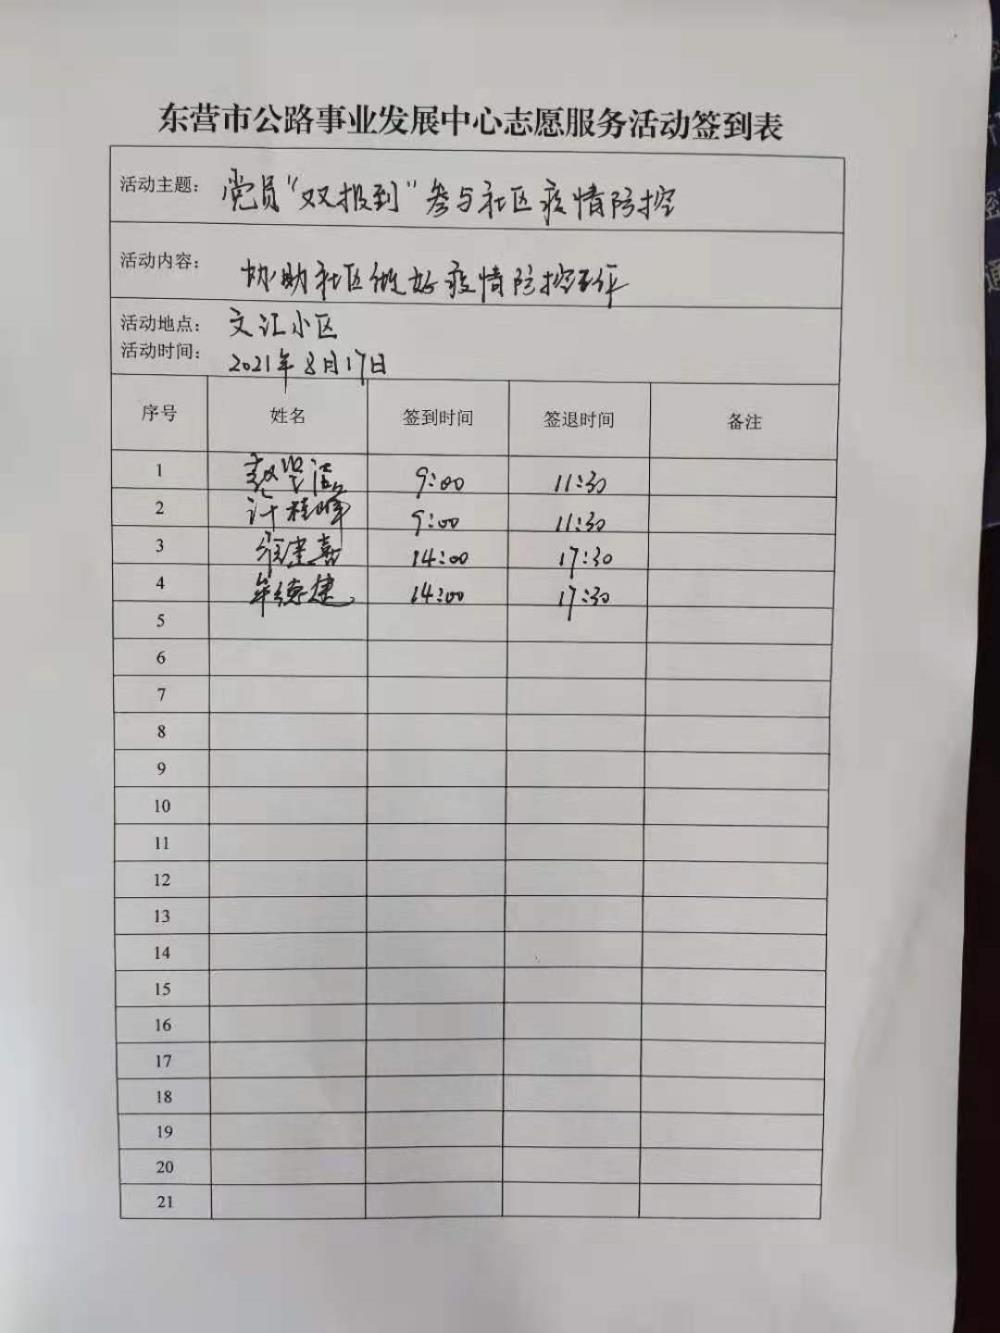 东营市公路事业发展中心志愿服务活动签到表
活动主题： 党员“双报到”参与社区疫情防控
活动内容： 协助社区做好疫情防控工作
活动地点： 文汇小区
活动时间： 2021年8月17日
序号 姓名 签到时间 签退时间 备注
1 9:00 11:30
2 计程峰 9:00 11:30
3 14:00 17:30
4 牟德建 14:00 17:30
5
6
7
8
9
10
11
12
13
14
15
16
17
18
19
20
21